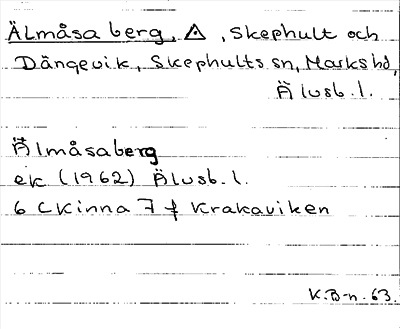 Älmåsa berg, △, Skephult och
Dängevik, Skephults sn, Marks hd,
Älvsb. l.
Älmåsaberg
ek (1962) Älvsb. l.
6 C Kinna 7 f Krakaviken
K. B-n. 63.